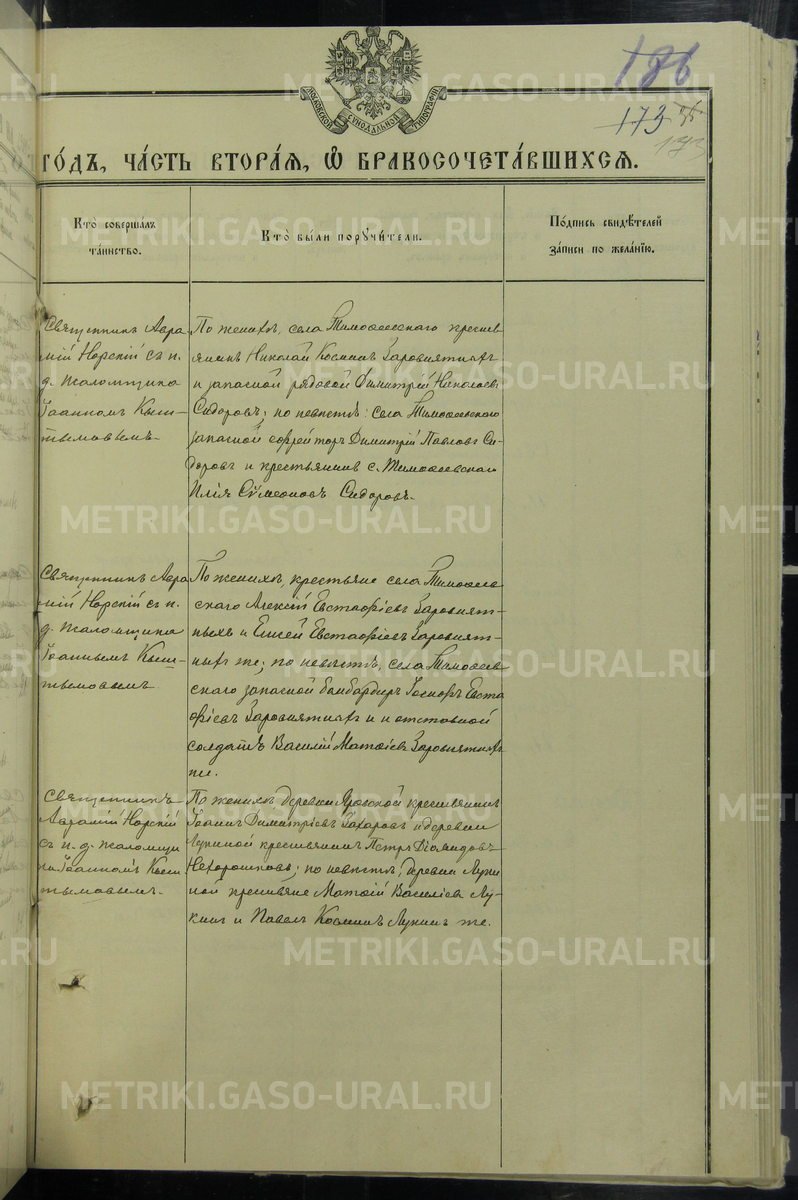 186
173
173
МОСКОВСКОЙ СѴНОДАЛЬНОЙ ТИПОГРАФІИ
го́дъ, ча́сть втора́я, ѡ҆ бракосочета́вшихся.
Кто̀ соверша́лъ
та́инство.
Кто̀ бы́ли порꙋчи́тели.
По́дпись свидѣ́телей
за́писи по жела́нїю.
Священникъ Авра
мій Норскій съ и.
д. псаломщика
Іоанномъ Кыш-
тымовымъ.
По женихѣ, села Тимоѳеевскаго кресть
янинъ Николай Косминъ Заровнятныхъ
и запасной рядовой Димитрій Николаевъ
Сидоровъ; по невѣстѣ: села Тимоѳеевскаго
запасной ефрейторъ Димитрій Павловъ Си-
доровъ и крестьянинъ с. Тимоѳеевскаго
Илія Сѵмеоновъ Сидоровъ.
Священникъ Авра
мій Норскій съ и.
д. псаломщика
Іоанномъ Кыш-
тымовымъ
По женихѣ, крестьяне села Тимоѳее
вскаго Алексій Евстафіевъ Заровнят-
ныхъ и Елисей Евстафіевъ Заровнят-
ныхъ же; по невѣстѣ, села Тимоѳеев
скаго запасной бомбардиръ Іосифъ Евста
фіевъ Заровнятныхъ и отставной
солдатъ Василій Матѳіевъ Заровнятныхъ
же.
Священникъ
Аврамій Норскій
съ и. д. псаломщи
ка Іоанномъ Кыш
тымовымъ.
По женихѣ деревни крестьянинъ
Іоаннъ Димитріевъ Захаровъ и деревни
Лукиной крестьянинъ Петръ Діомидовъ
Нехорошковъ; по невѣстѣ, деревни Луки
ной крестьяне Матѳій Василіевъ Лу-
кинъ и Павелъ Косминъ Лукинъ же.
METRIKI.GASO-URAL.RU